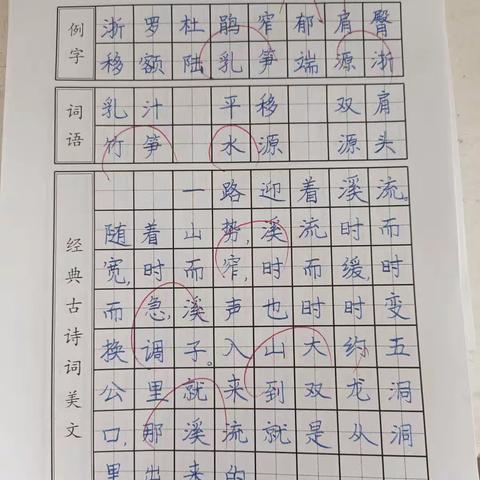 例字
浙罗杜鹃窄郁肩臀
移额陆乳笋端源浙
词语
乳汁 平移 双肩
竹笋 水源 源头
经典古诗词美文
一路迎着溪流。
随着山势,溪流时而
宽,时而窄,时而缓,时
而急,溪声也时时变
换调子。入山大约五
公里就来到双龙洞
口,那溪流就是从洞
里出来的